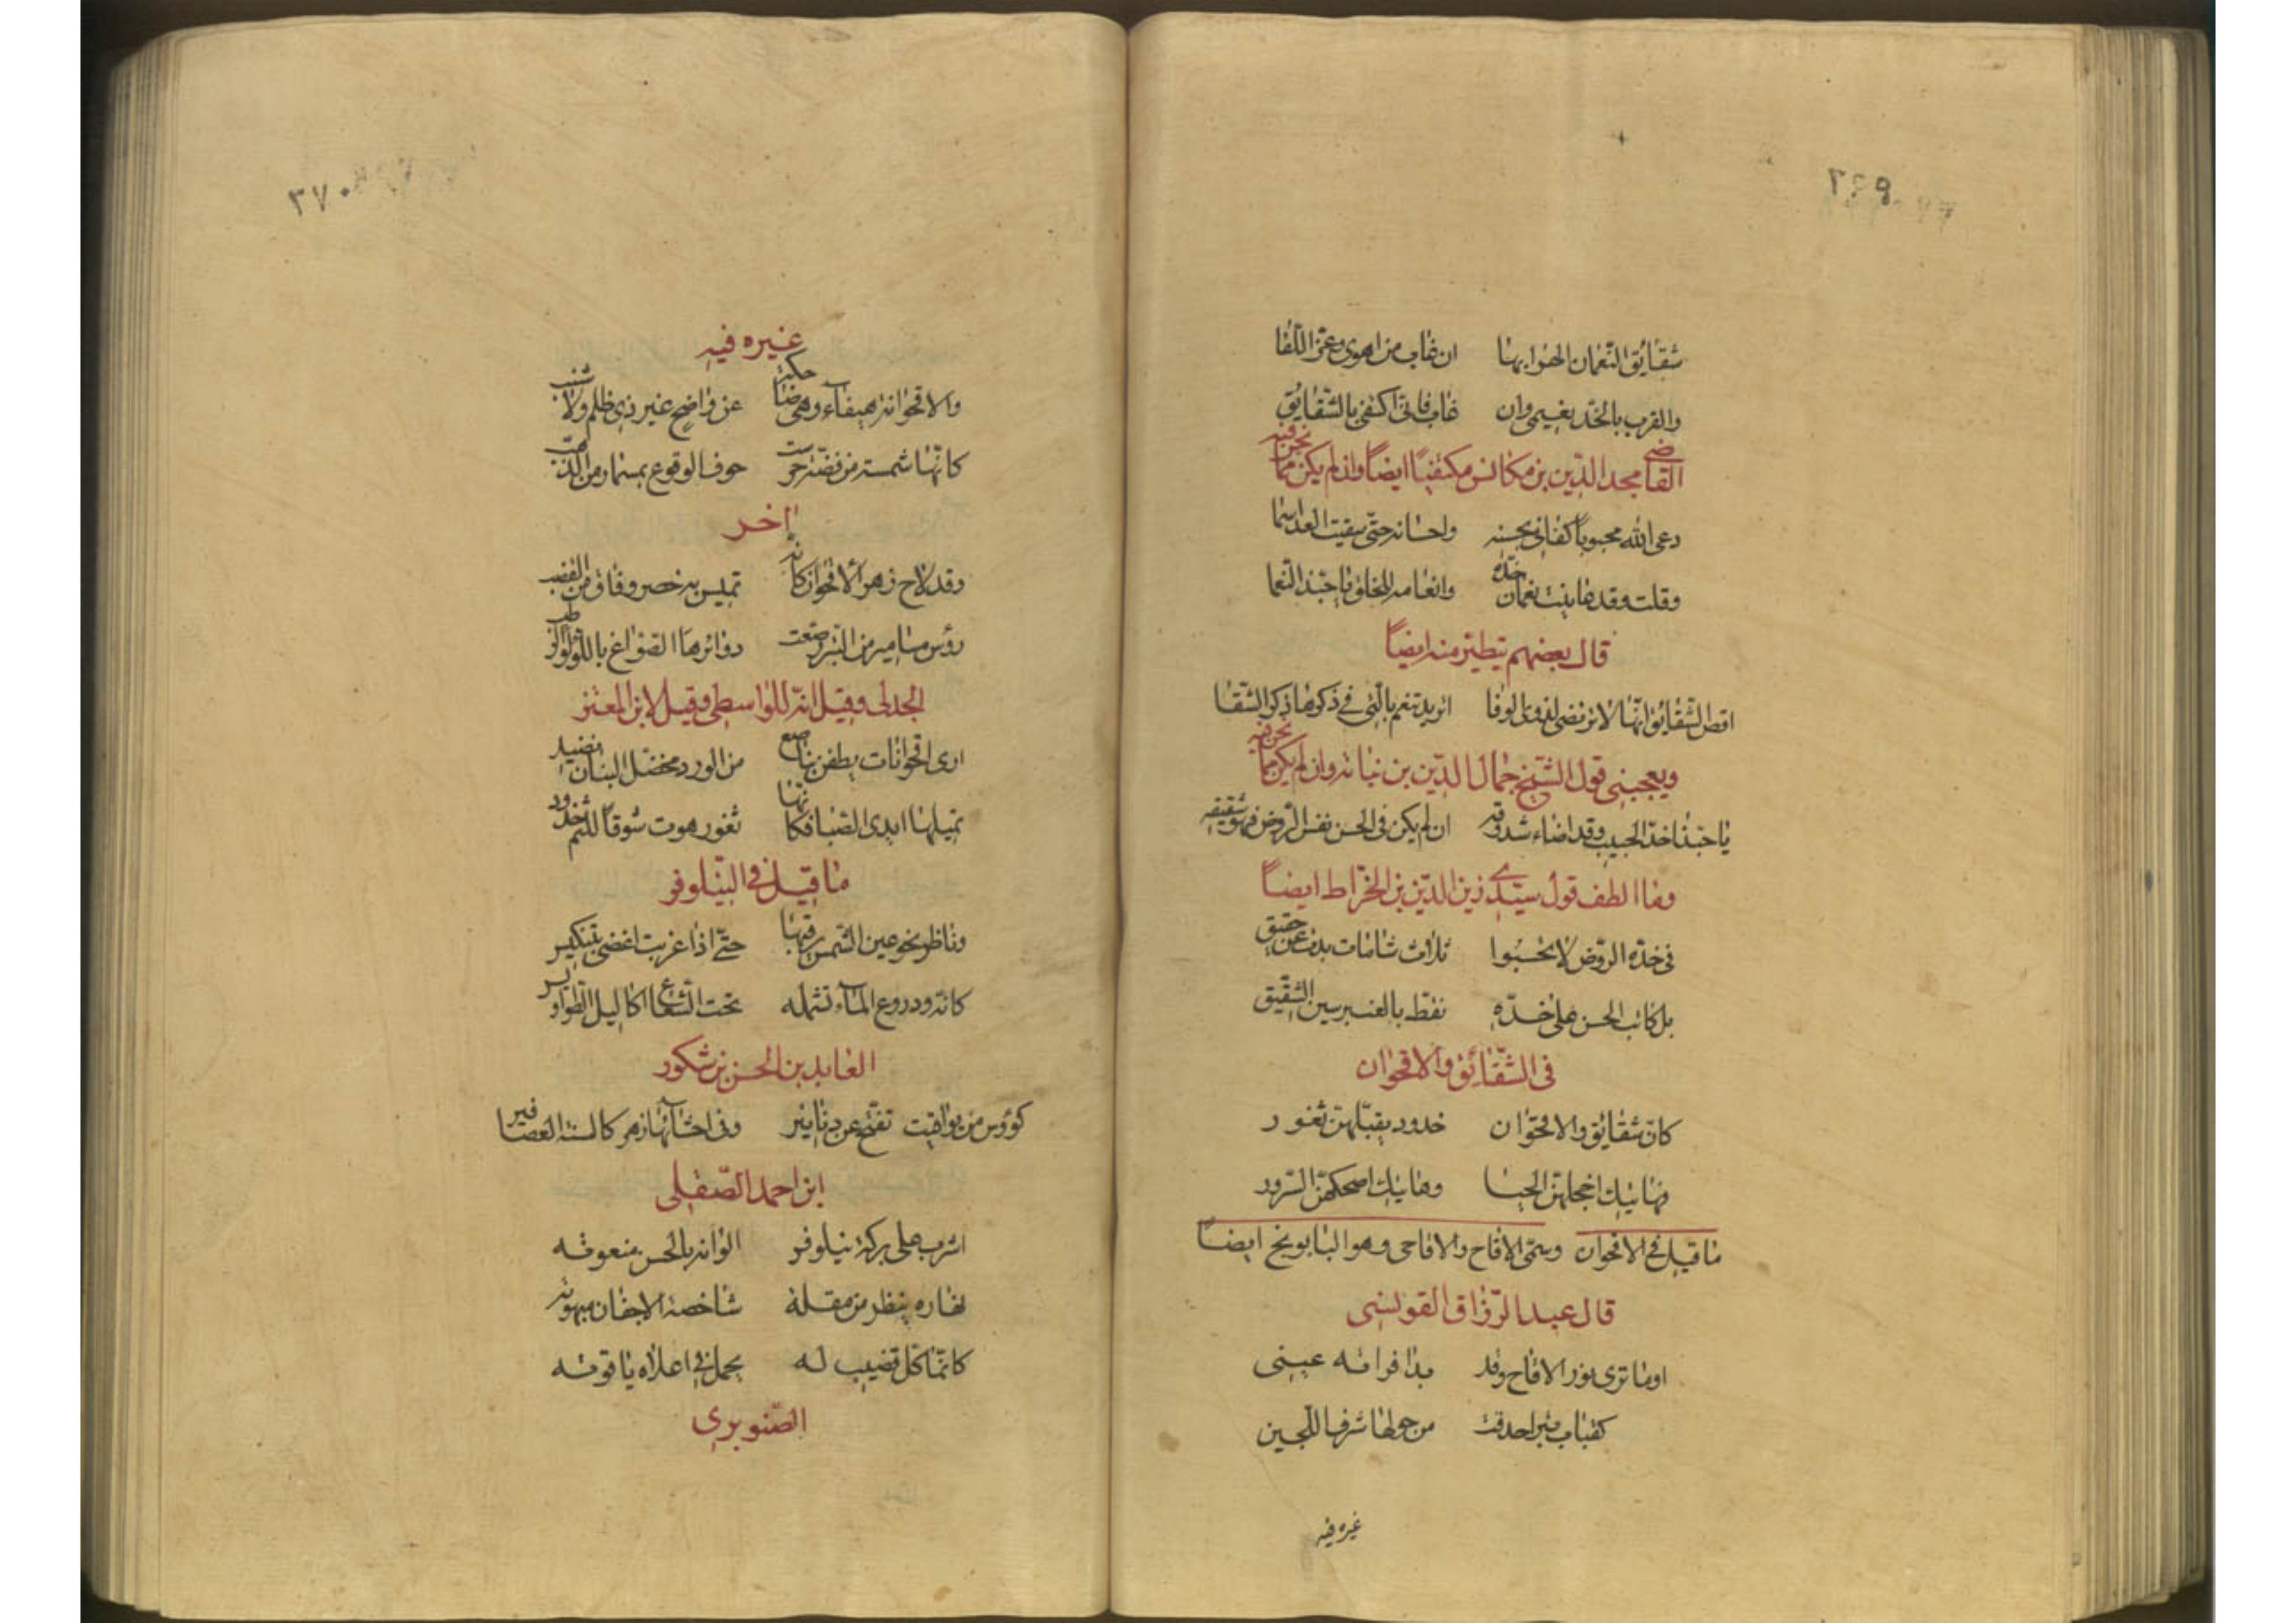 ٣٦٩
شقايق النعمان الهو ابها ان غاب من اهوى وعز اللقا
والقرب بالخد نعيمي وان غاب فاني اكتفي بالشقايق
القاضي مجد الدين بن مكانس مكتفيا ايضا وان لم يكن مما نحن فيه
رعى الله محبوبا كفاني بحسنه واحسانه حتى سقيت العدا سما
وقلت وقد عاينت نعمان خده وانعامه للخلق يا حبذا النعما
قال بعضهم يتطير منه ايضا
اقص الشقايق انها لا ترتضى لذوى الوفا اتريد تنعم بالتي في ذكرها ذكر الشقا
ويعجبني قول الشيخ جمال الدين بن نباته وان لم يكن مما نحن فيه
يا حبذا خد الحبيب وقد اضاء شدوقه ان لم يكن في الحسن نفس الروض فهو شقيقه
وما الطف قول سيدي زين الدين بن الخراط ايضا
في خده الروض لا تحسبوا ثلاث شامات بدت عن حقيق
بل كاتب الحسن على خده نقط بالعنبر سين الشقيق
في الشقائق والاقحوان
كان شقائق والاقحوان خدود يقبلهن ثغور
فهاتيك اخجلهن الحيا وهاتيك اضحكهن السرور
ما قيل في الاقحوان ويسمى الاقاح والاقاحى وهو البابونج ايضا
قال عبد الرزاق القوسني
اوما ترى نور الاقاح وقد بدا فراقه عيني
كقباب تبر احدقت من حولها شرف اللجين
غيره فيه
٣٧٠
غيره فيه
والاقحوانه هيفاء وهي ضاحكة عن واضح غير ذي ظلم ولا شنب
كانها شمسة من فضة حرست خوف الوقوع بمسمار من الذهب
اخر
وقد لاح زهر الاقحوان كانه تميس به خصر وفاق من القضب
رؤس مسامير من التبر رصعت دوائرها الصواغ باللؤلؤ الرطب
الجدلى وقيل انه للواسطي وقيل لابن المعتز
ارى اقحوانات يطفن بناصع من الورد مخضل البنان نضيد
تميلها ايدى الصبا فكانها ثغور هوت شوقا للثم خدود
ما قيل في النيلوفر
وناظر نحو عين الشمس يرقبها حتى اذا غربت اغضى بتنكيس
كانه ودروع الماء تشمله تحت الشعاع اكاليل الطواويس
العابد بن الحسن بن شكور
كؤوس من يواقيت تفتح عن دنانير وفي احشائها زهر كالسنة العصافير
ابن احمد الصقلي
اشرب على بركة نيلوفر الوانه بالحسن منعوته
نهاره ينظر من مقلة شاخصة الاجفان مبهوته
كانما كل قضيب له يحمل في اعلاه ياقوته
الصنوبري